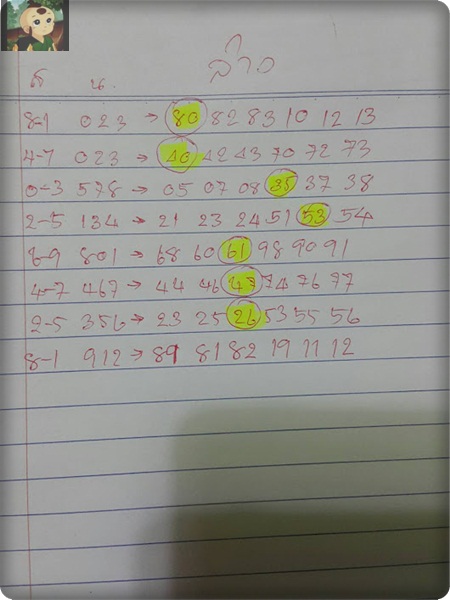 ล่าง
ส น.
8-1 023 → 80 82 83 10 12 13
4-7 023 → 40 42 43 70 72 73
0-3 578 → 05 07 08 35 37 38
2-5 134 → 21 23 24 51 53 54
6-9 801 → 68 60 61 98 90 91
4-7 467 → 44 46 47 74 76 77
2-5 356 → 23 25 26 53 55 56
8-1 912 → 89 81 82 19 11 12